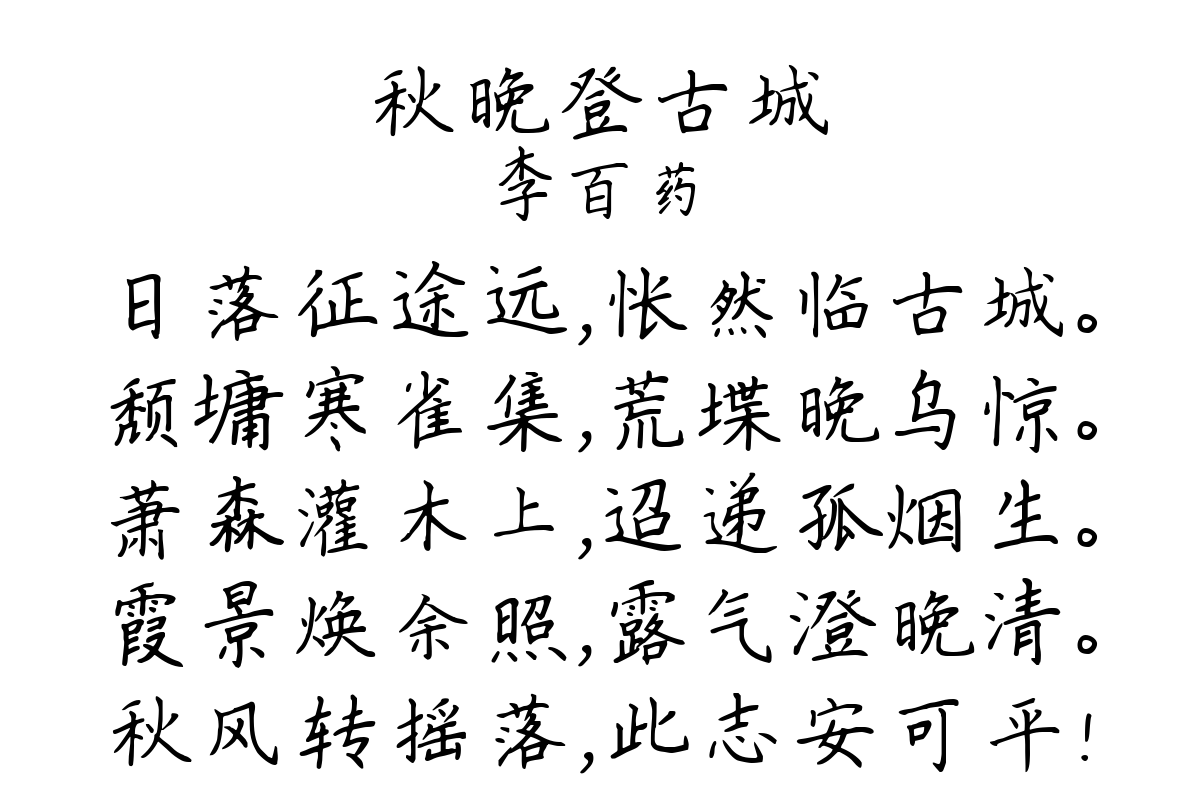 秋晚登古城
李百药
日落征途远,怅然临古城。
颓墉寒雀集,荒堞晚乌惊。
萧森灌木上,迢递孤烟生。
霞景焕余照,露气澄晚清。
秋风转摇落,此志安可平!